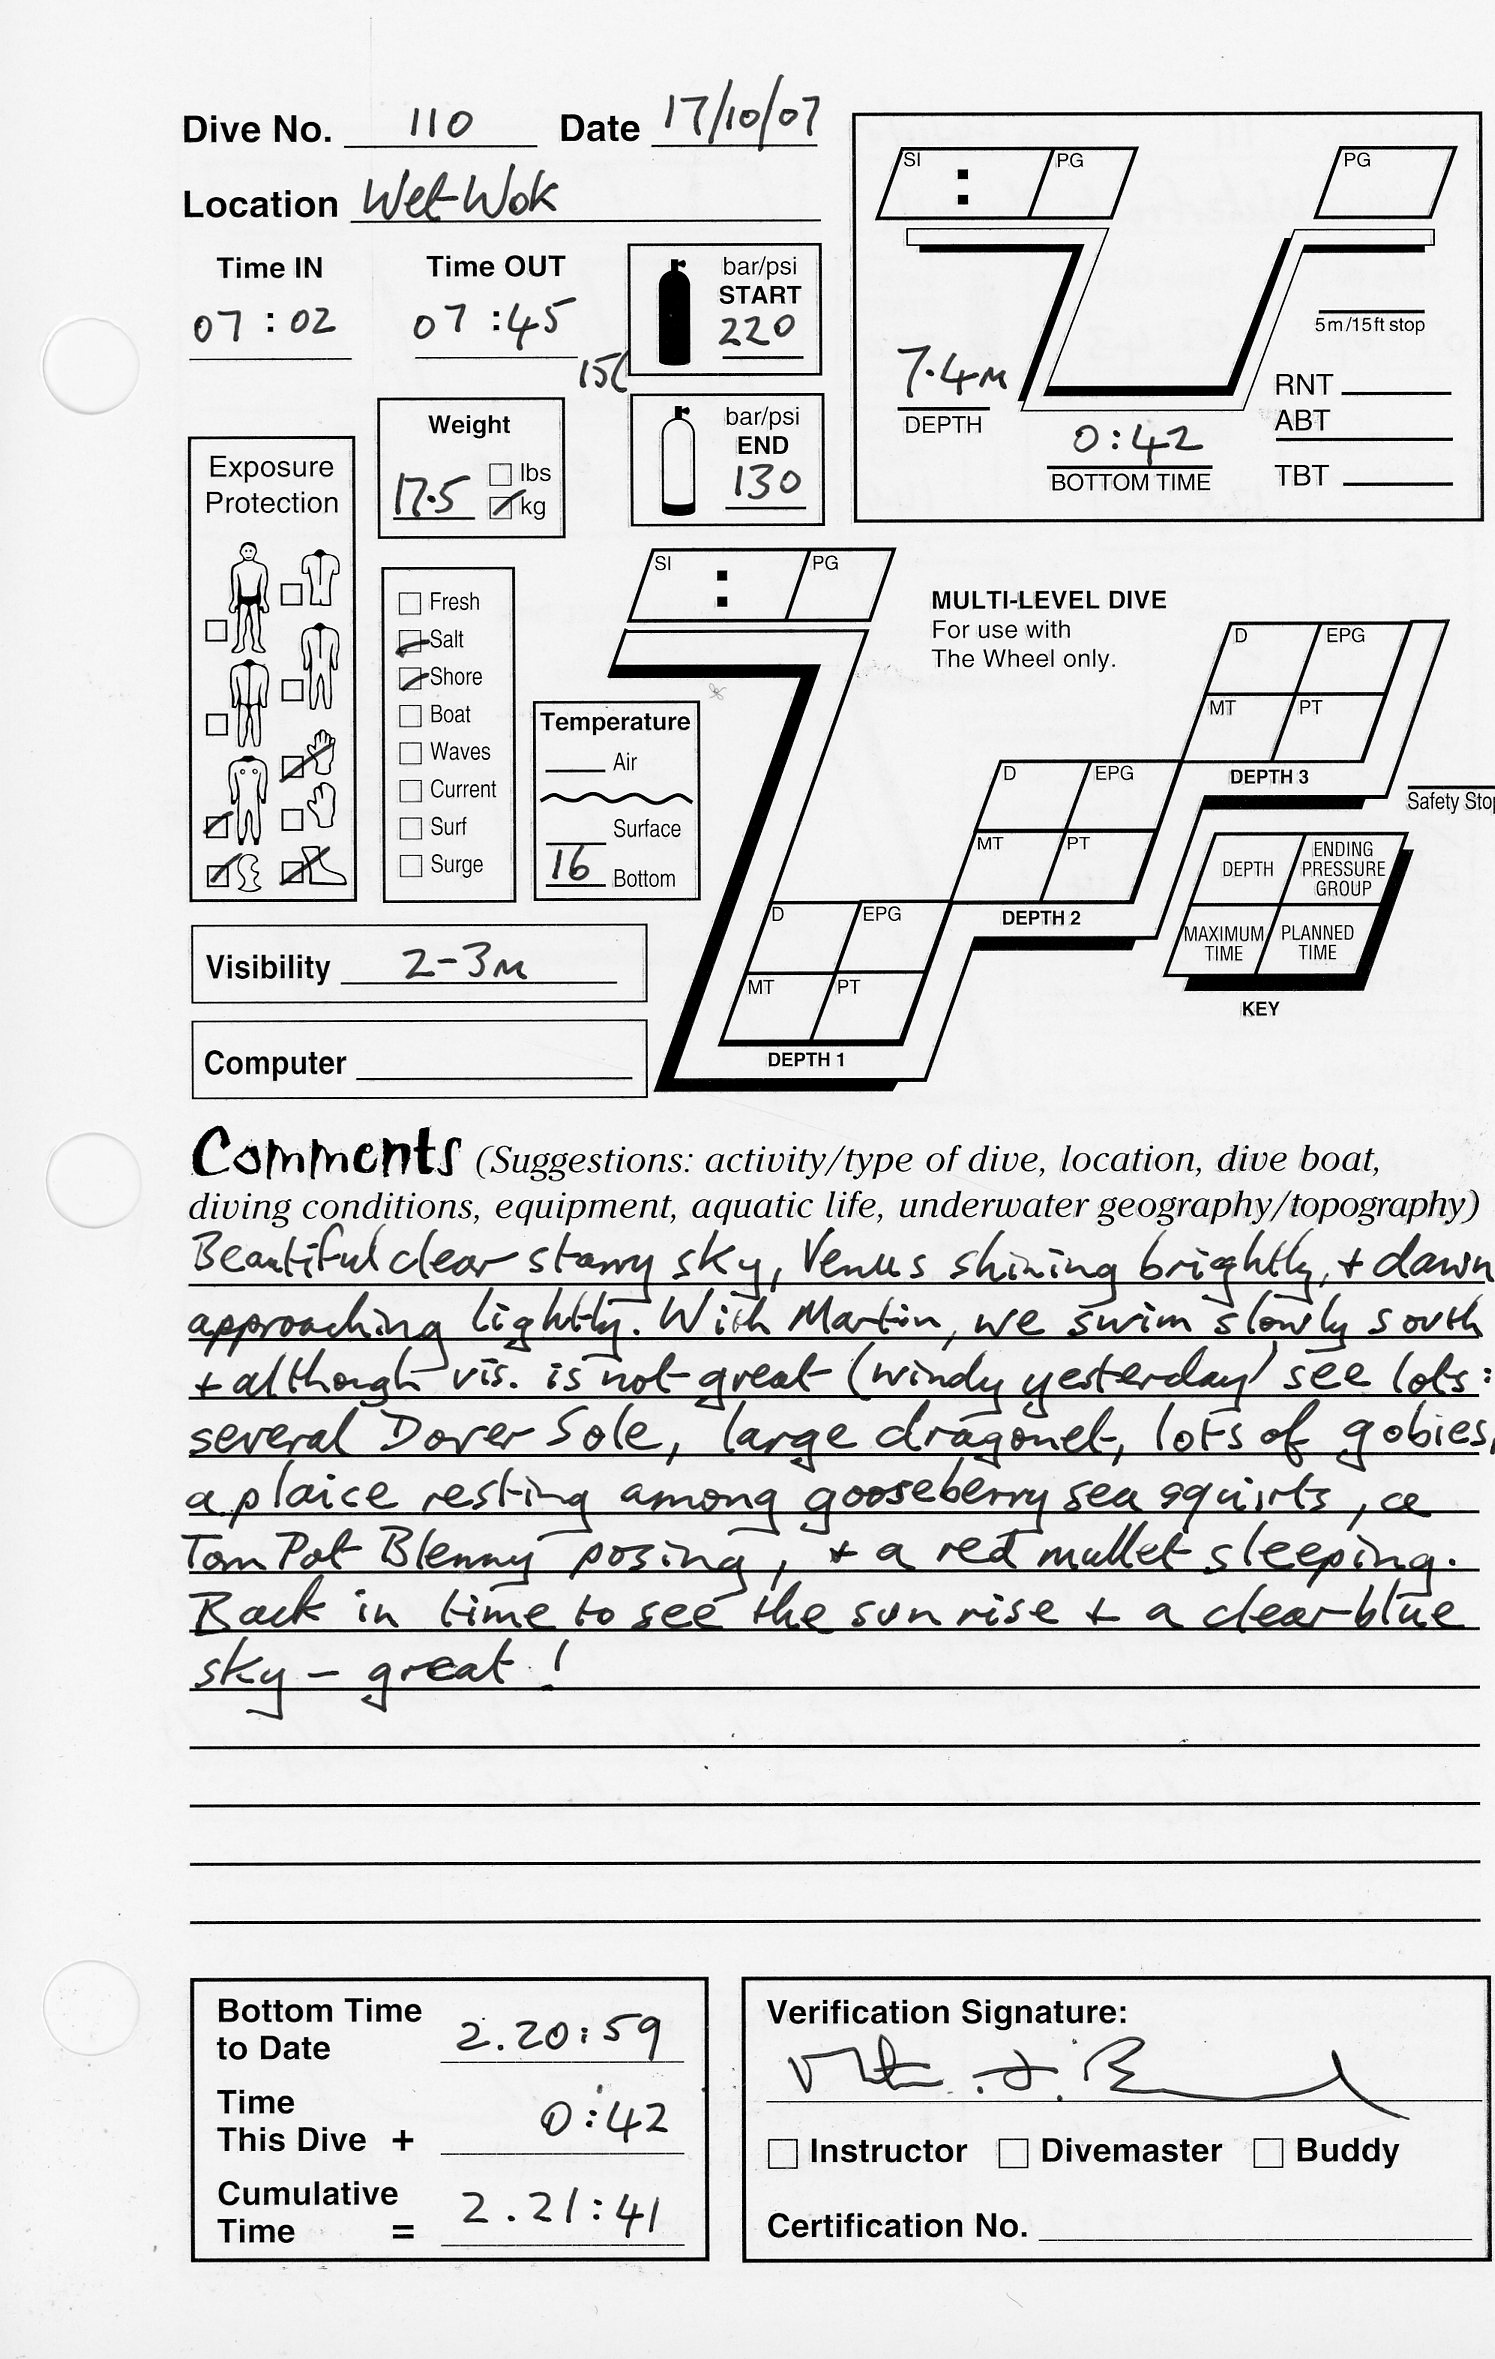 Dive No. 110 Date 17/10/07
Location Wet Wok
Time IN Time OUT
07 : 02 07 : 45
15l
bar/psi
START
220
bar/psi
END
130
Weight
17.5 lbs
kg
Exposure
Protection
Fresh
Salt
Shore
Boat
Waves
Current
Surf
Surge
Temperature
Air
Surface
16 Bottom
Visibility 2-3m
Computer
SI : PG
PG
5m/15ft stop
7.4m
DEPTH
0:42
BOTTOM TIME
RNT
ABT
TBT
SI : PG
MULTI-LEVEL DIVE
For use with
The Wheel only.
D EPG
MT PT
DEPTH 3
Safety Stop
D EPG
MT PT
DEPTH 2
D EPG
MT PT
DEPTH 1
DEPTH
ENDING
PRESSURE
GROUP
MAXIMUM
TIME
PLANNED
TIME
KEY
Comments (Suggestions: activity/type of dive, location, dive boat,
diving conditions, equipment, aquatic life, underwater geography/topography)
Beautiful clear starry sky, Venus shining brightly, + dawn
approaching lightly. With Martin, we swim slowly south
+ although vis. is not great (windy yesterday) see lots:
several Dover Sole, large dragonet, lots of gobies,
a plaice resting among gooseberry sea squirts, a
Tom Pot Blenny posing, + a red mullet sleeping.
Back in time to see the sun rise + a clear blue
sky - great!
Bottom Time
to Date 2.20:59
Time
This Dive + 0:42
Cumulative
Time = 2.21:41
Verification Signature:
Instructor Divemaster Buddy
Certification No.